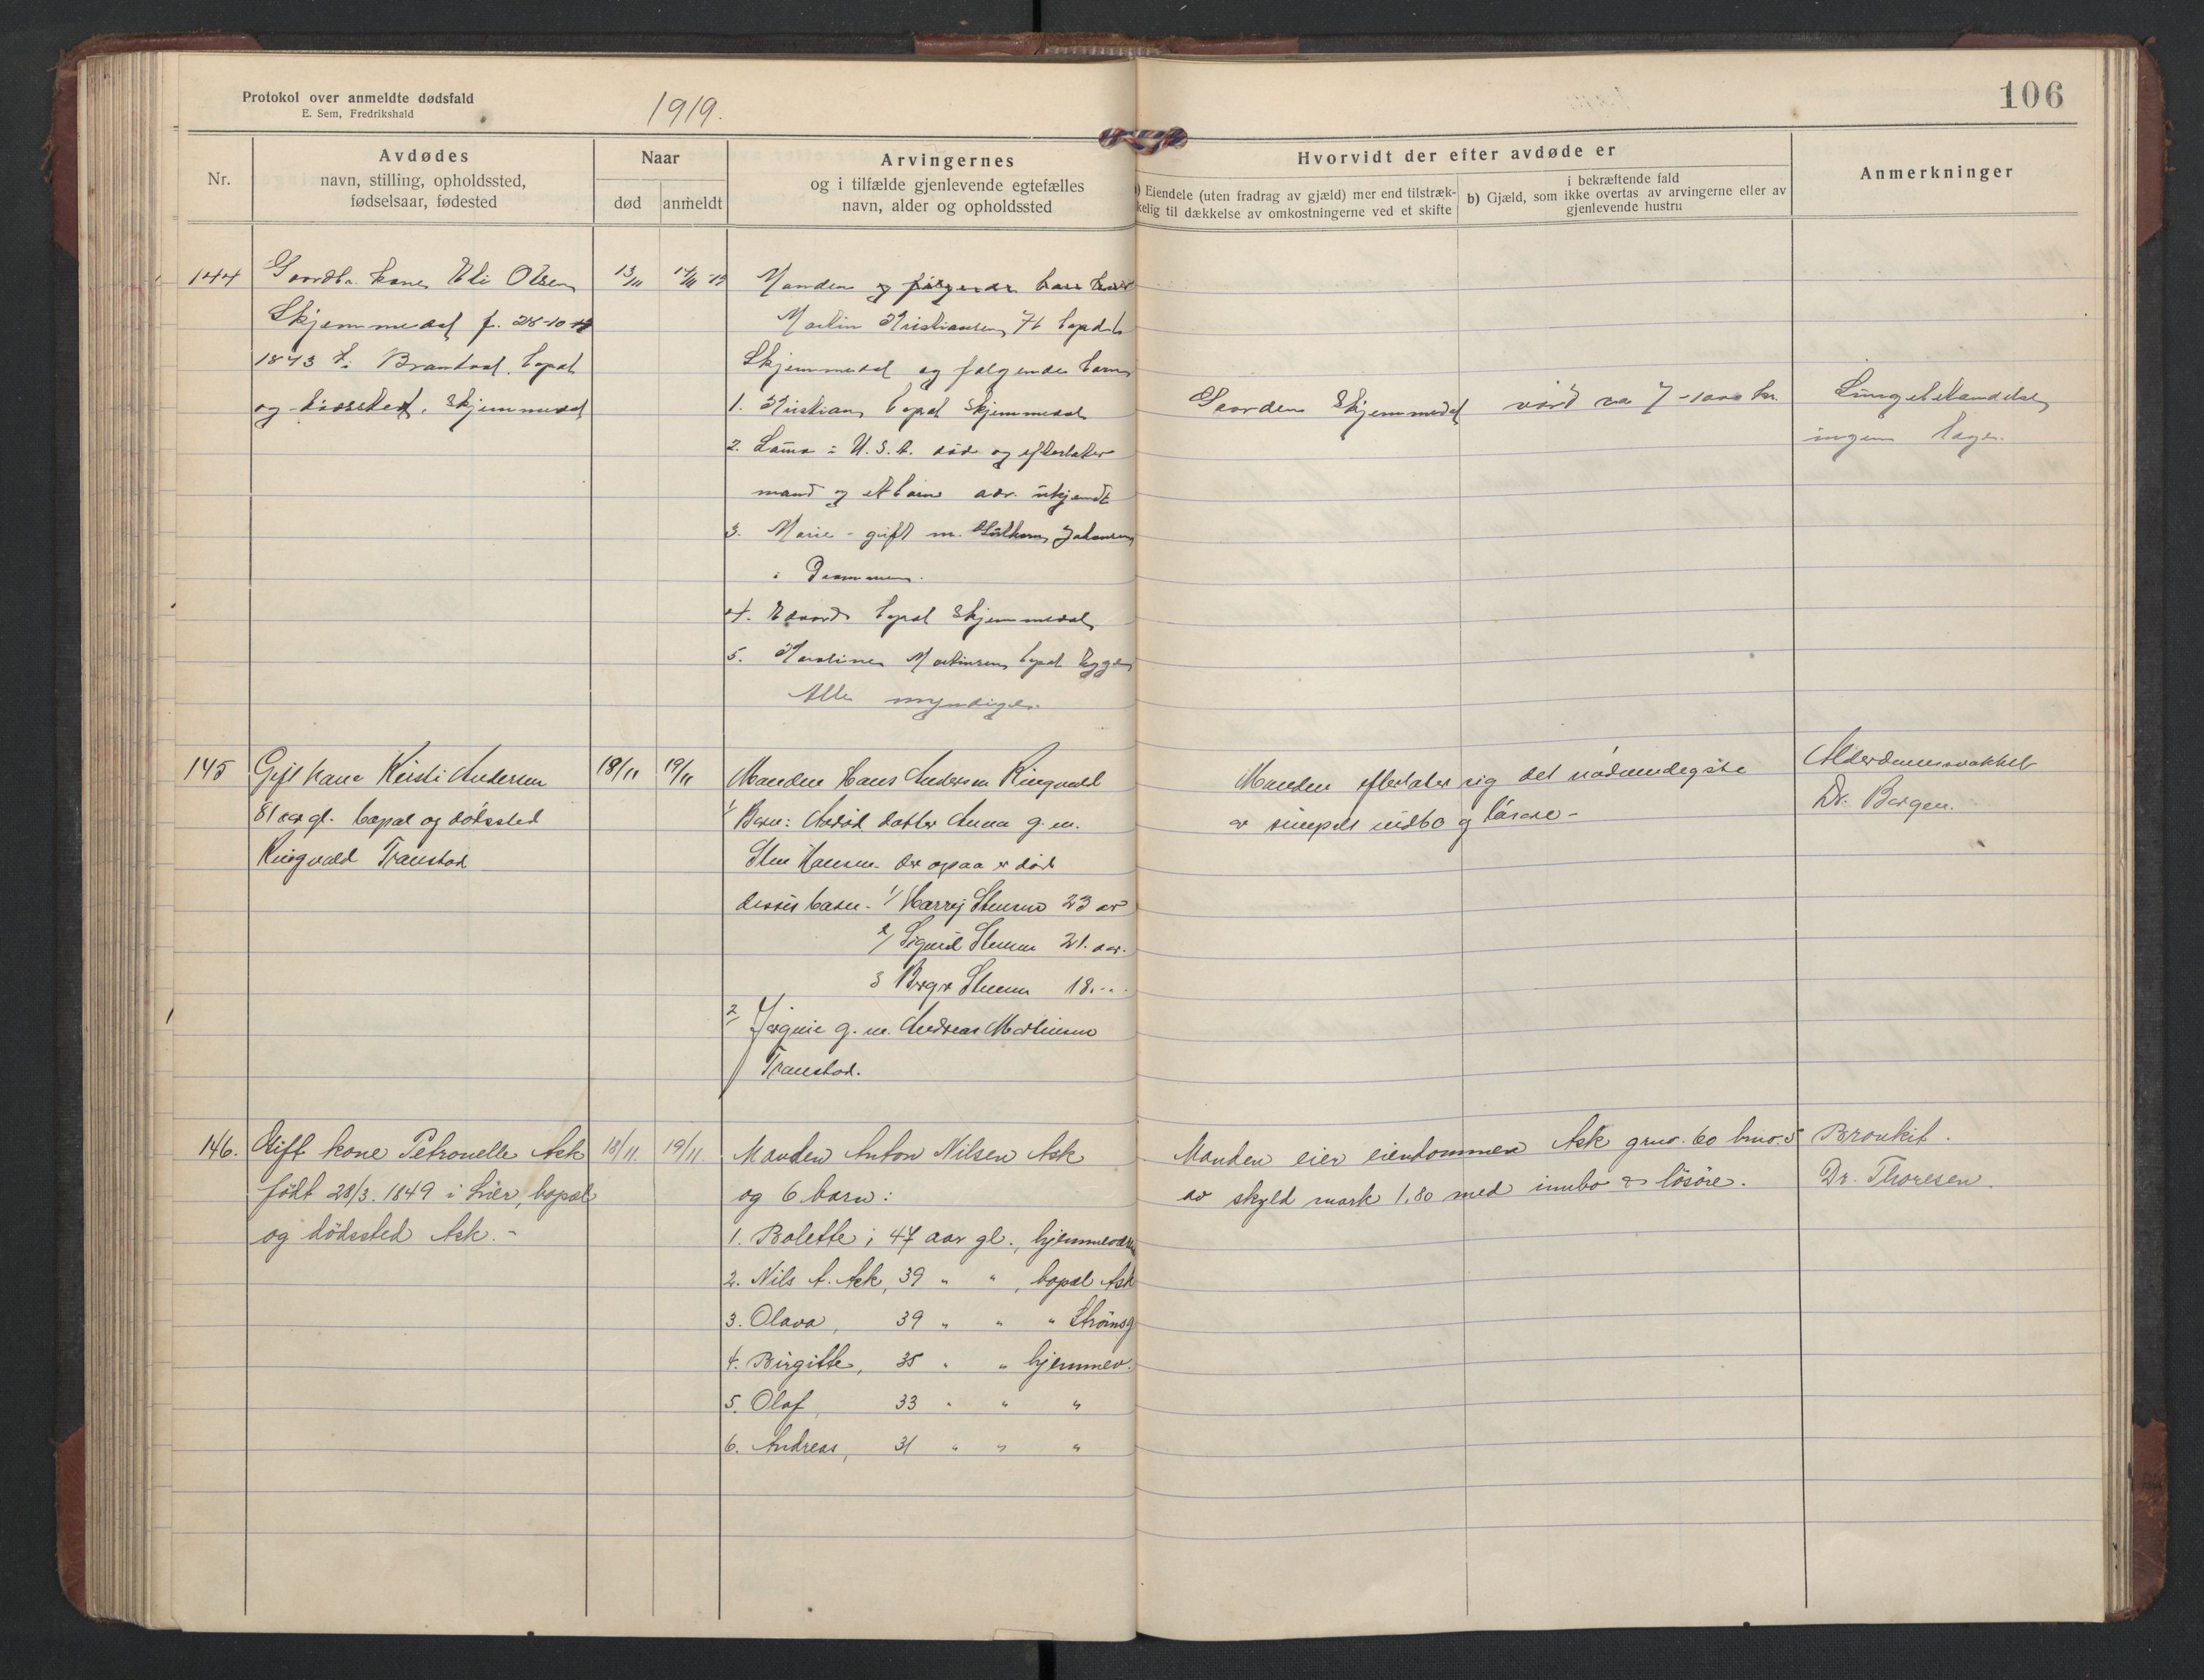 Protokol over anmeldte dødsfald
E. Sem, Fredrikshald
1919.
106
Nr.
Avdødes
navn, stilling, opholdssted,
fødselsaar, fødested
Naar
død
anmeldt
Arvingernes
og i tilfælde gjenlevende egtefælles
navn, alder og opholdssted
Hvorvidt der efter avdøde er
a) Eiendele (uten fradrag av gjæld) mer end tilstræk-
kelig til dækkelse av omkostningerne ved et skifte
i bekræftende fald
b) Gjæld, som ikke overtas av arvingerne eller av
gjenlevende hustru
Anmerkninger
144
Gaardbr. kone Eli Olsen
Skjemmedal f. 28-10
1843 i Brandval. bopæl
og dødssted. Skjemmedal
13/11
14/11 19
Manden og følgende barn
Martin Kristiansen 76 bopæl
Skjemmedal og følgende barn
1. Kristian bopæl Skjemmedal
2. Laura i U. S. A. død og efterlater
mand og et barn adr. ukjendt
3. Marie - gift m. Johansen
i Drammen.
4. Edvard bopæl Skjemmedal
5. Karoline Martinsen bopæl
Alle myndige.
Gaarden Skjemmedal værd ca 7-1000 kr.
Lungebetændelse
ingen læge.
145
Gift kone Kirsti Andersen
81 aar gl. bopæl og dødssted
Ringvold Tranbad
18/11
19/11
Manden Hans Andersen Ringvold
1/ Barn: Avdød datter Anna g. m.
Sten Hansen. der ogsaa er død
disses barn. 1/ Harry Stensen 23 aar
2/ Sigurd Stensen 21. aar.
3 Birger Stensen 18. - -
2/ Jørgine g. m. Andreas Martinsen
Tranbad.
Manden efterlater sig det nødvendigste
av simpelt indbo og løsøre -
Alderdomssvakhet
Dr. Borgen.
146.
Gift kone Petronelle Ask
født 28/3. 1849 i Lier, bopæl
og dødssted Ask. -
18/11.
19/11.
Manden Anton Nilsen Ask
og 6 barn:
1. Bolette, 47 aar gl., hjemmeværende
2. Nils A. Ask, 39 " " , bopæl Ask
3. Olava, 39 " " " Strømsg
4. Birgitte, 35 " " hjemmev.
5. Olaf, 33 " " "
6. Andreas, 31 " " "
Manden eier eiendommen Ask grno. 60 brno. 5
av skyld mark 1,80 med innbo & løsøre.
Bronkit.
Dr. Thoresen.